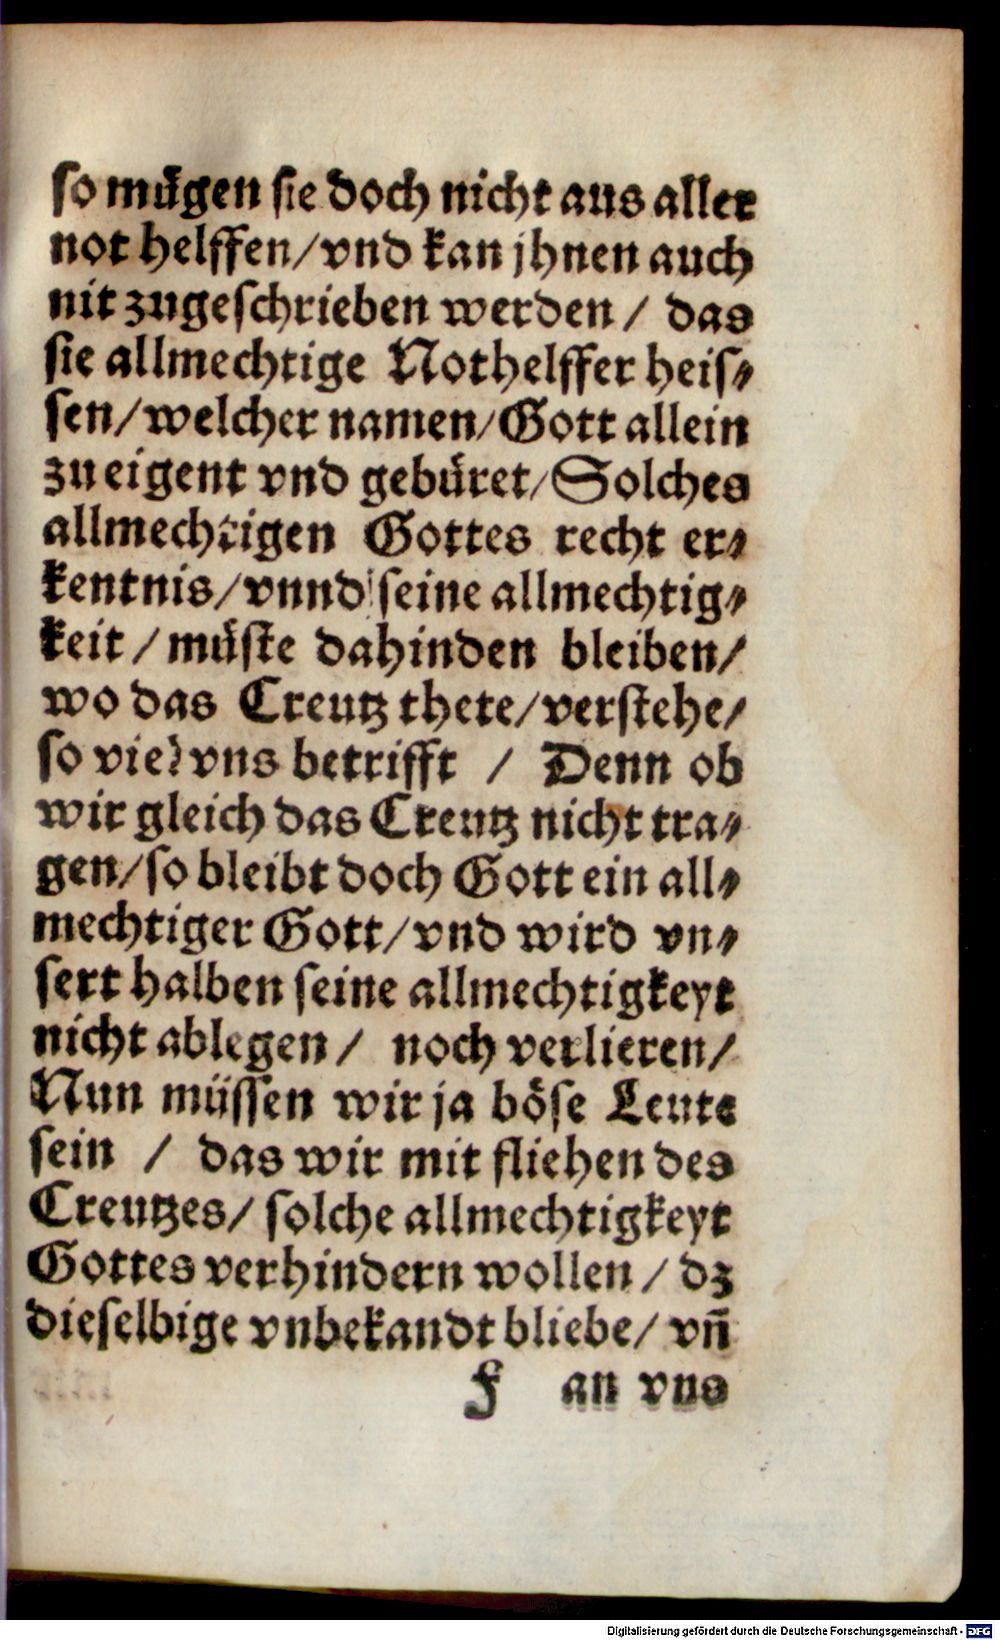 so mügen sie doch nicht aus aller
not helffen/vnd kan jhnen auch
nit zugeschrieben werden / das
sie allmechtige Nothelffer heis⸗
sen/welcher namen/Gott allein
zu eigent vnd gebüret/Solches
allmechtigen Gottes recht er⸗
kentnis/vnnd seine allmechtig⸗
keit / müste dahinden bleiben/
wo das Creutz thete/verstehe/
so viel vns betrifft / Denn ob
wir gleich das Creutz nicht tra⸗
gen/so bleibt doch Gott ein all⸗
mechtiger Gott/vnd wird vn⸗
sert halben seine allmechtigkeyt
nicht ablegen / noch verlieren/
Nun müssen wir ja böse Leute
sein / das wir mit fliehen des
Creutzes/ solche allmechtigkeyt
Gottes verhindern wollen / dz
dieselbige vnbekandt bliebe/ vñ
F an vns
Digitalisierung gefördert durch die Deutsche Forschungsgemeinschaft - DFG